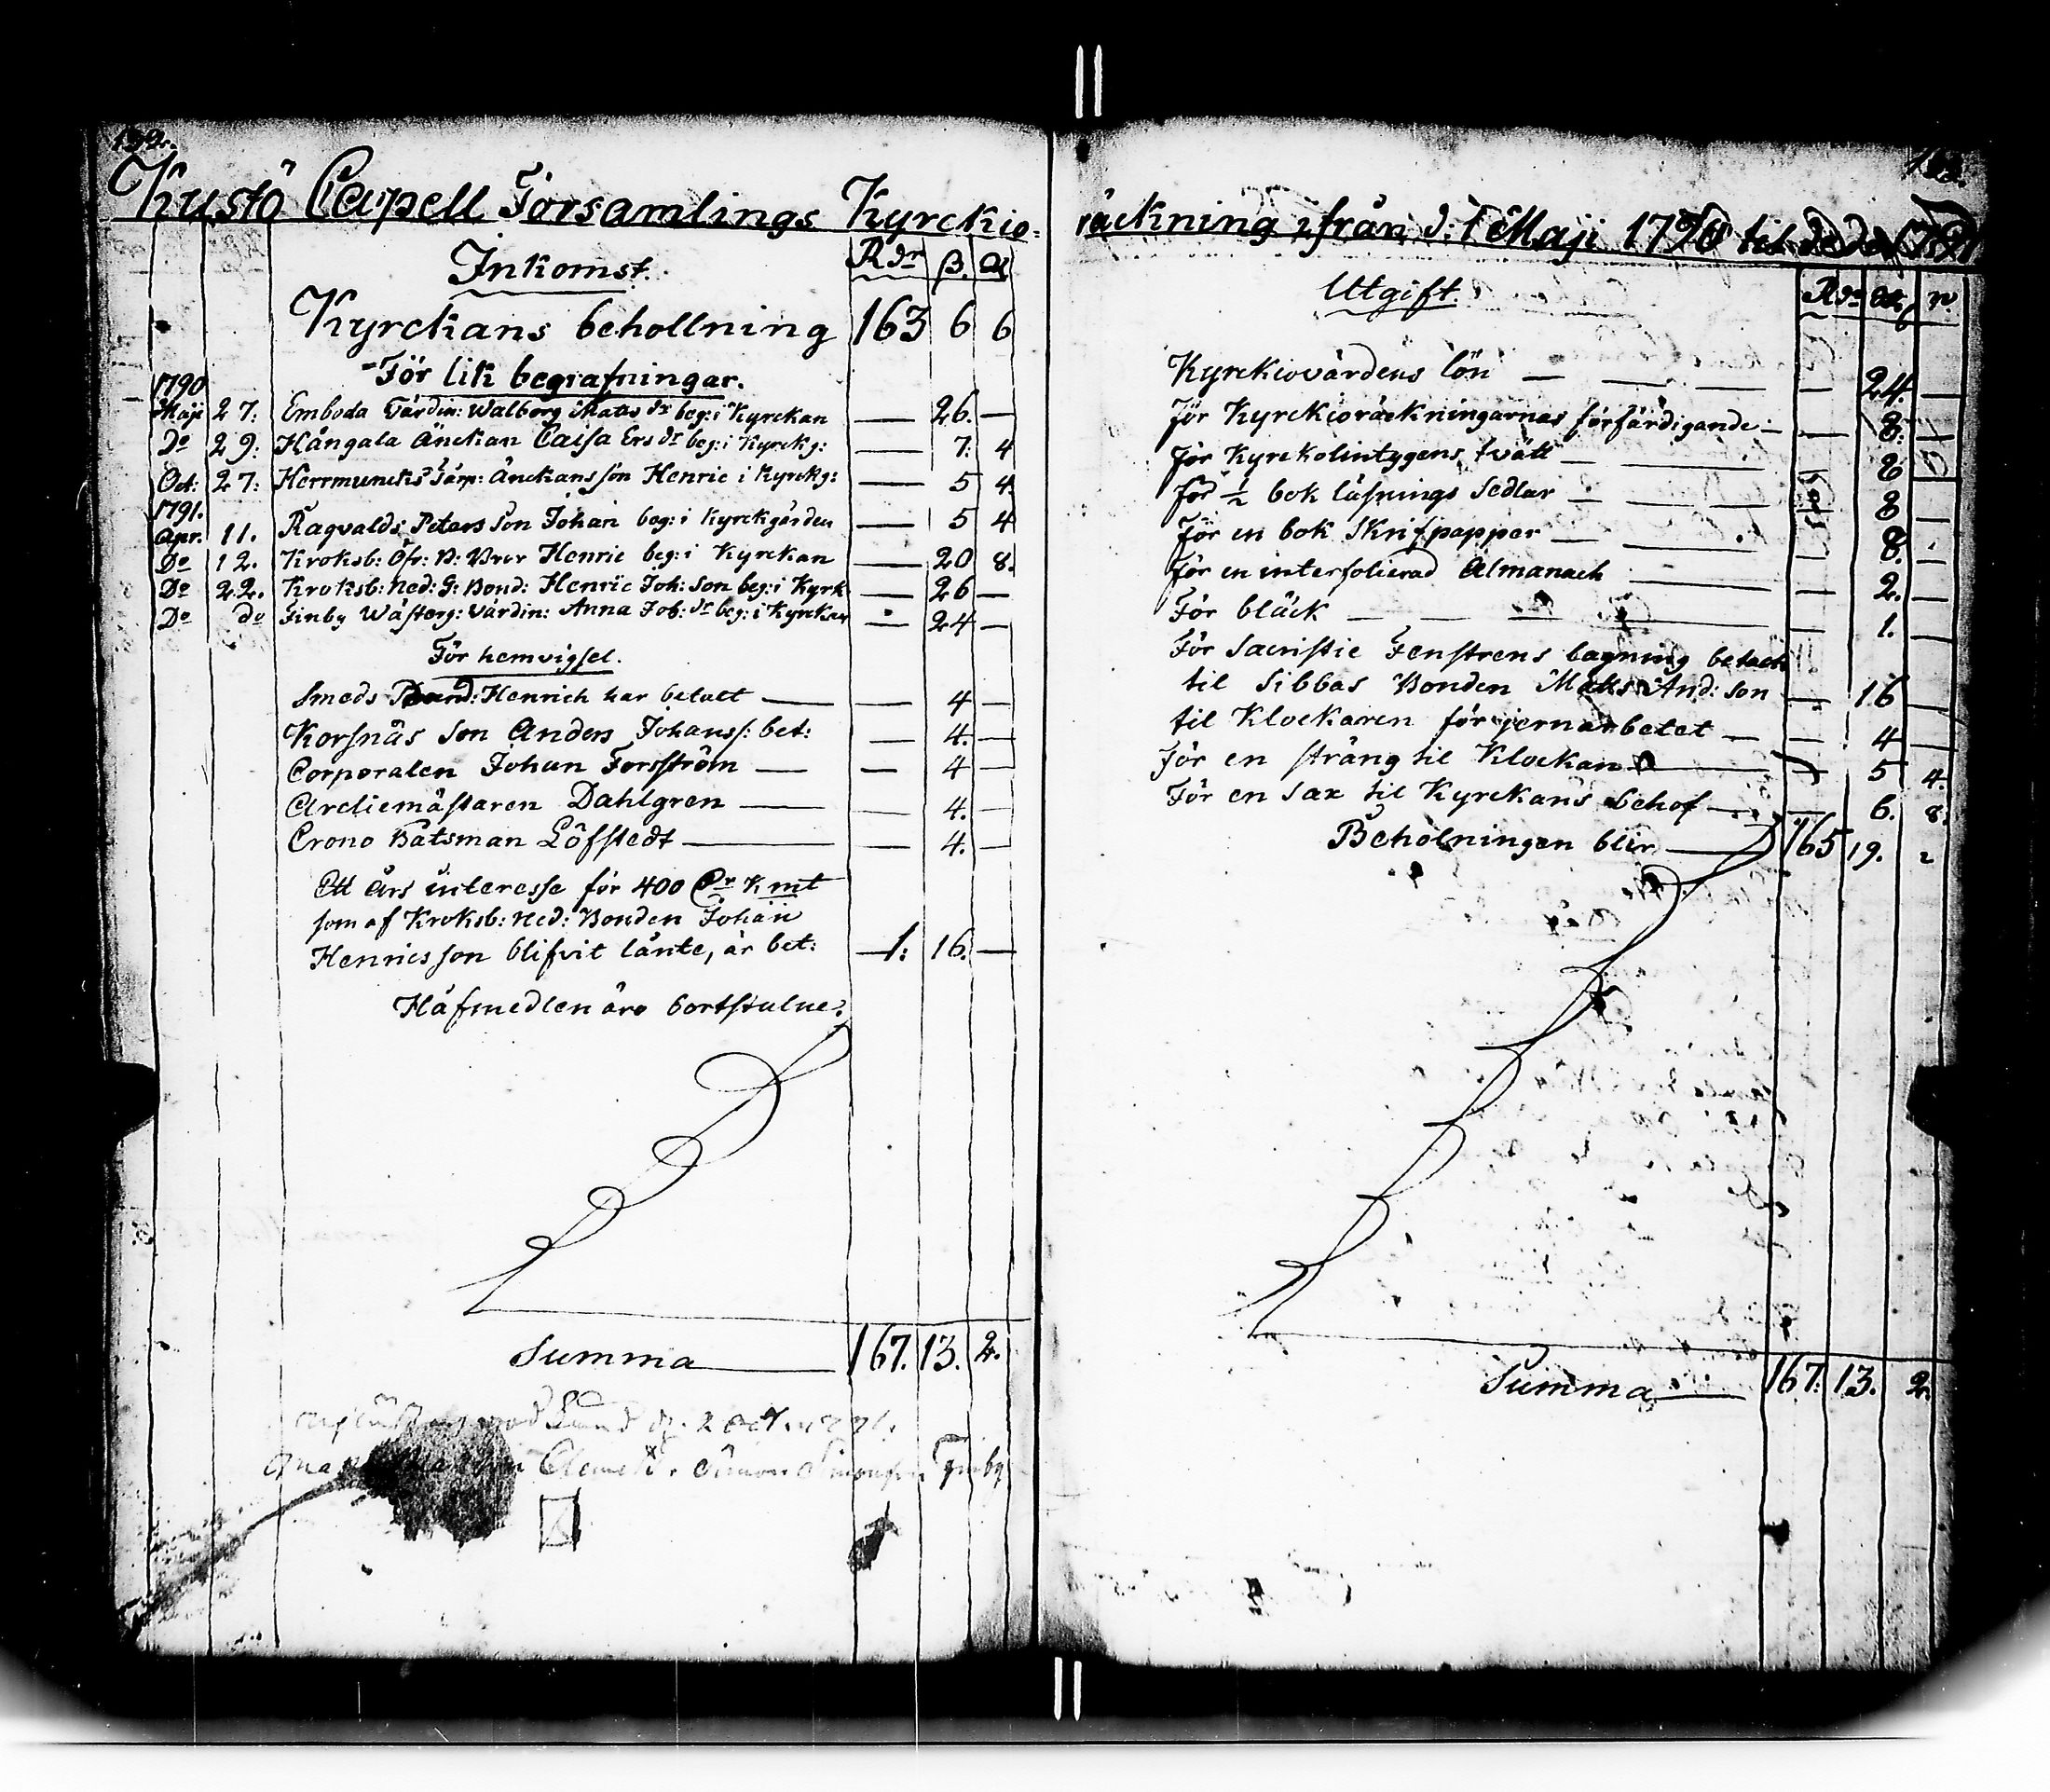 Kustö Capell Församlings Kyrckio-
Inkomst. Rdr ß.
Kyrckans behollning 163 6 6
För lik begrafningar.
1790
Maji 27: Emboda Värdin: Walborg Matts dr beg: i Kyrckan — 26. —
Do 29: Hångala Änckan Caisa Ers dr beg: i Kyrckg: — 7: 4
Oct: 27: Herrmuncks Torp: Änckans son Henric i Kyrckg: — 5 4.
1791.
Apr. 11. Ragvalds Peters Son Johan beg: i Kyrckgården — 5 4
Do 12. Kroksb: Öfr: B: Bror Henric beg: i Kyrckan — 20 8.
Do 22. Kroksb: Ned: G: Bond: Henric Joh: Son beg: i Kyrk — 26 —
Do do Finby Wästerg: Värdin: Anna Joh: dr beg: i Kyrckan — 24 —
För hemvigsel.
Smeds Henrich har betalt — — 4 —
Korsnäs Son Anders Johanss: bet: — 4. —
Corporalen Johan Forsström — — 4 —
Arcliemästaren Dahlgren — — 4. —
Crono Båtsman Löfstedt — — 4. —
Ett års interesse för 400 Dr Kmt
som af Kroksb: Ned: Bonden Johan
Henricsson blifvit lånte, är bet: — 1: 16. —
Håfmedlen äro bortstulne.
Summa — 167. 13. 2.
Simon Simonsson Finby
räckning ifrån d: 1 Maji 1790 til
Utgift. Rdr
Kyrckiovärdens lön — — — — 24. —
För Kyrckioräckningarnas förfärdigande — — 8. —
För Kyrckolintygens tvätt — — — 8 —
För ½ bok läsnings Sedlar — — — 8 —
För en bok Skrifpapper — — — 8. —
För en interfolierad Almanach — — 2. —
För bläck — — — — 1. —
För Sacristie Fenstrens lagning betalt
til Sibbas Bonden Matts And: Son — 16 —
til Klockaren för jernarbetet — — 4 —
För en sträng til Klockan — — 5 4.
För en sax til Kyrckans behof — — 6. 8.
Beholningen blir — 165 19. 2
Summa — 167. 13. 2.